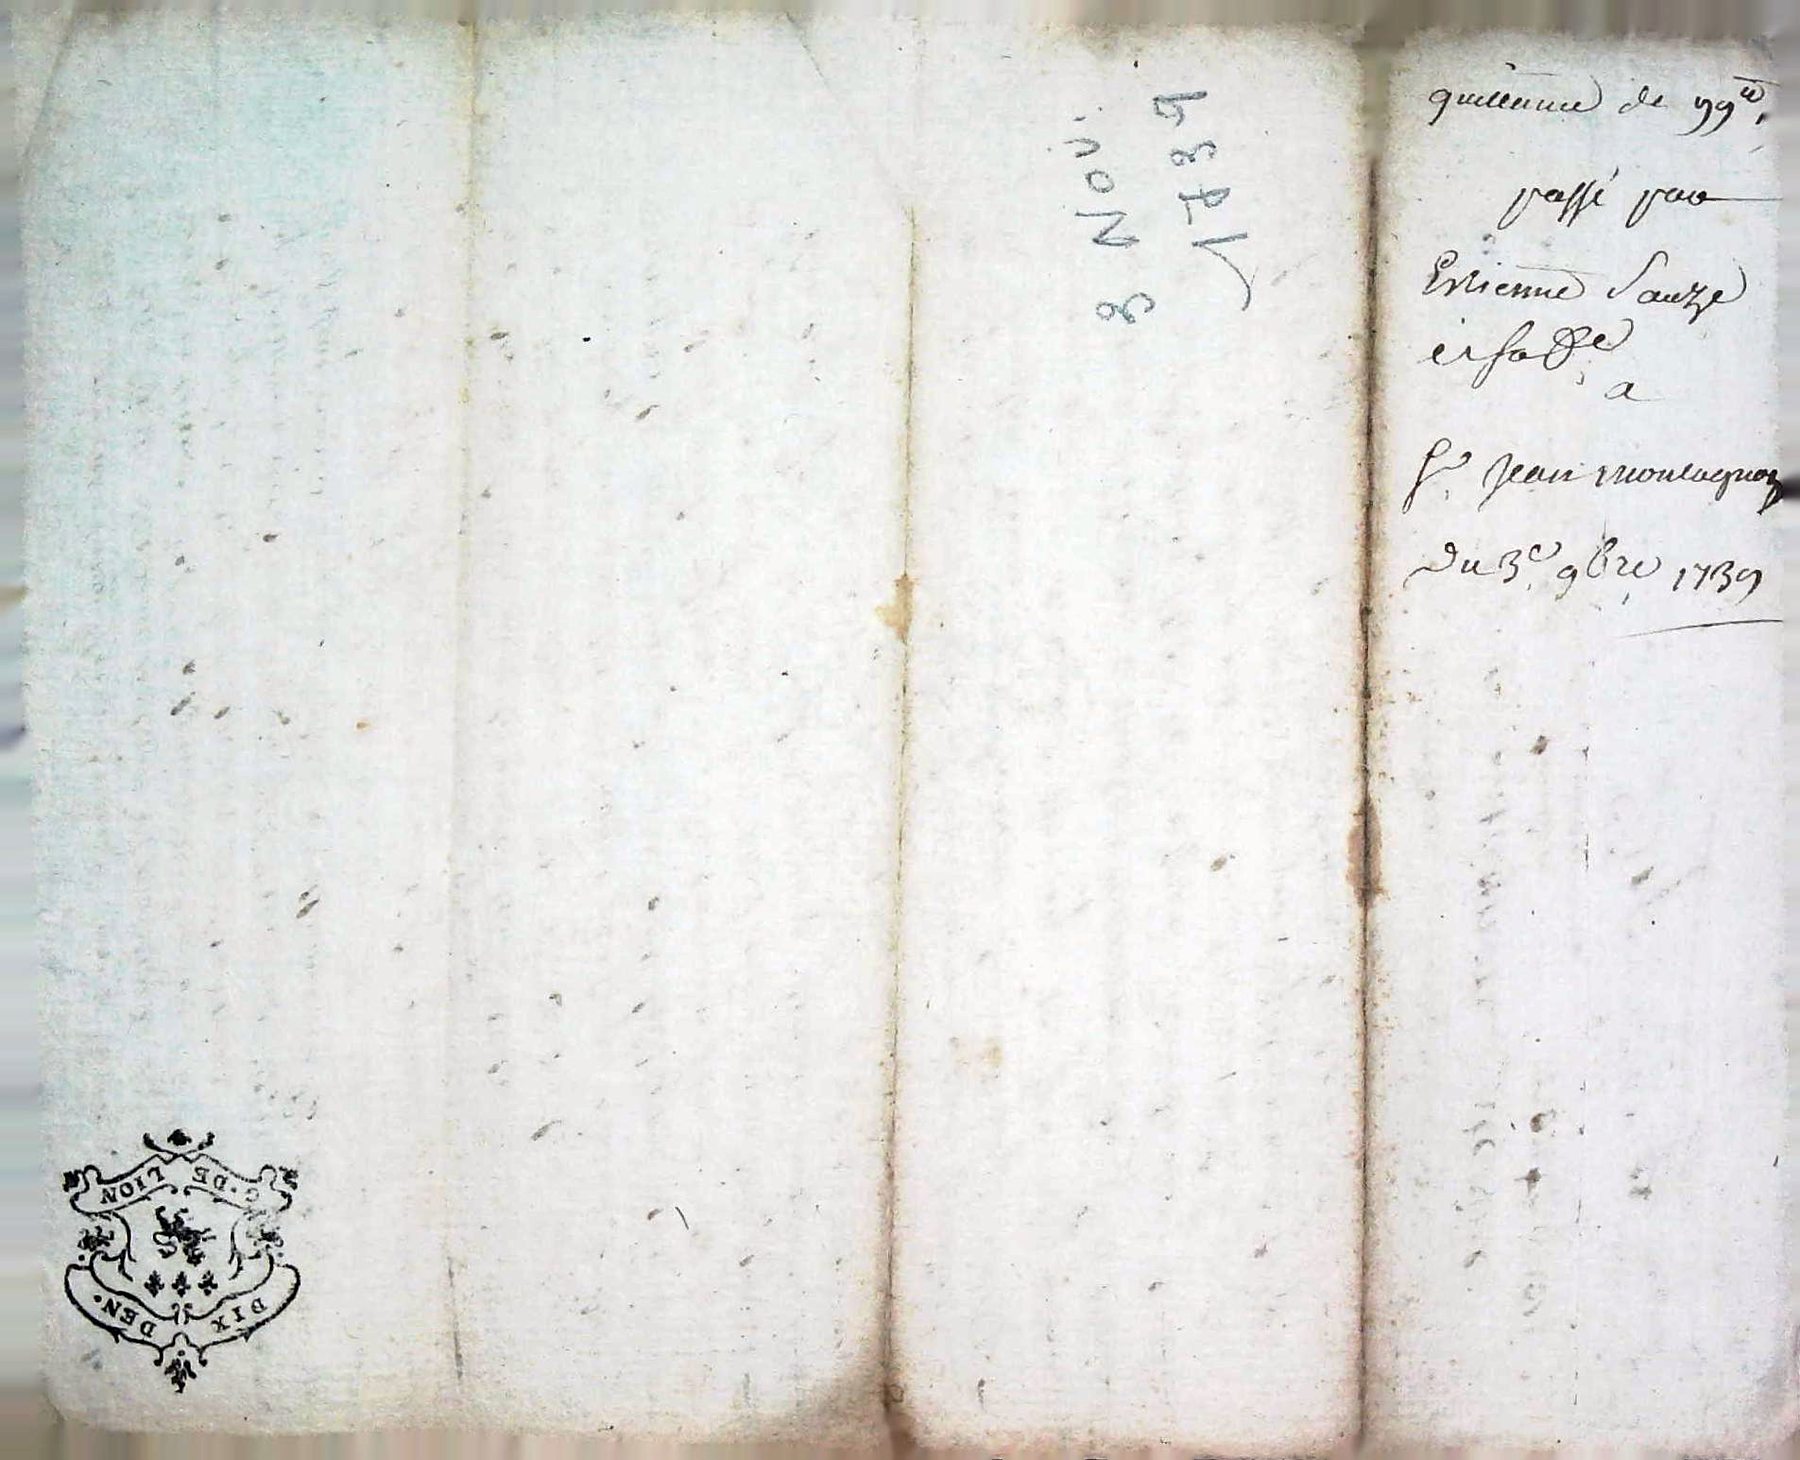 quittance de 99ᵗᵗ.
passé par
Estienne Sauze
et sa ffe
a
Sʳ. Jean montagnon
Du 3ᵉ. 9bre 1739
3 Nov.
1739
G. DE LION
DIX DEN.